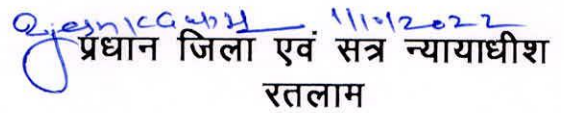 1/10/2022
प्रधान जिला एवं सत्र न्यायाधीश
रतलाम